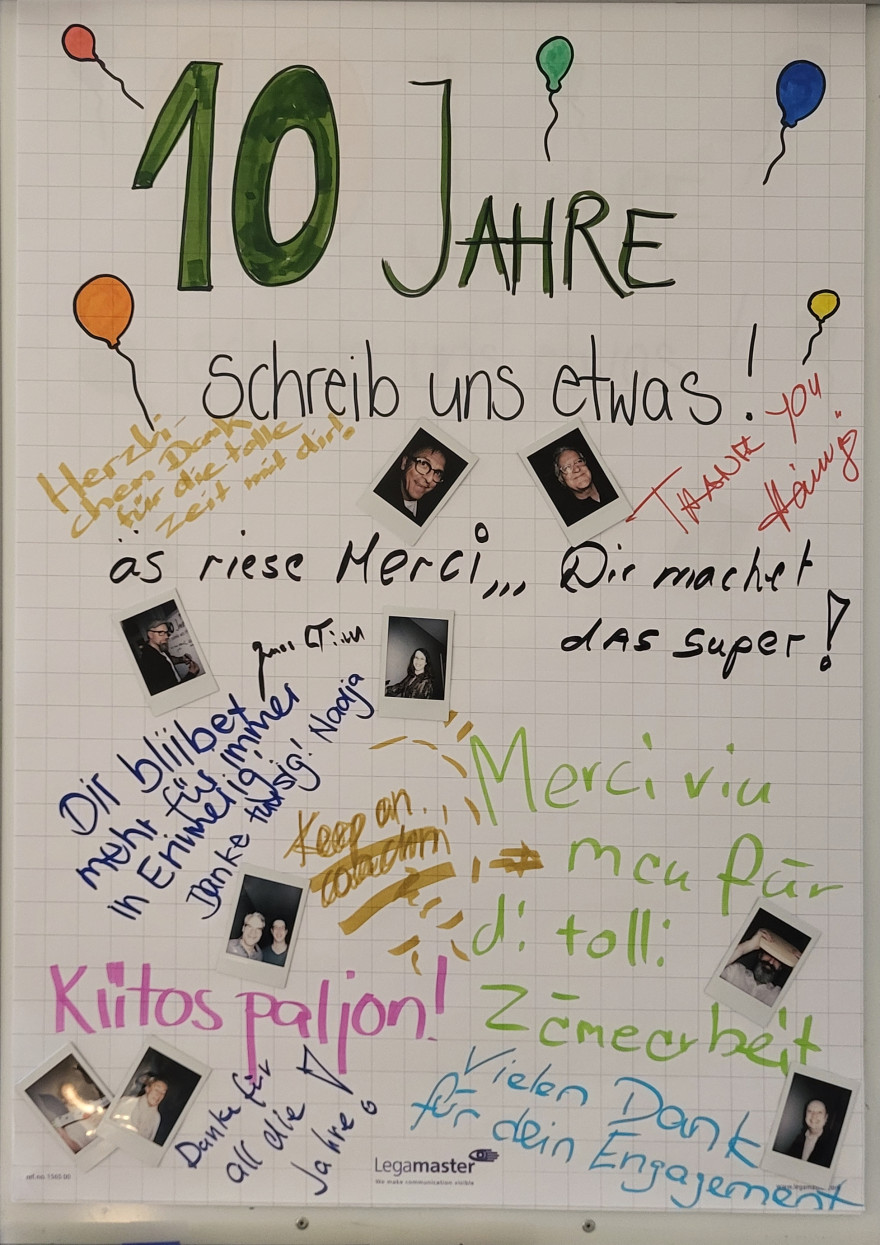 10 JAHRE
schreib uns etwas!
Herzli-
chen Dank
für die tolle
Zeit mit dir!
THANK YOU
äs riese Merci,,, Dir machet
das super!
Dir bliibet
mehr für immer
in Erinnerig!
Danke tuusig! Nadja
Keep on
Merci viu
mau für
di tolli
Zämearbeit
Kiitos paljon!
Danke für
all die
Jahre!
Vielen Dank
für dein Engagement
Legamaster
We make communication visible
ref.no. 1560 00